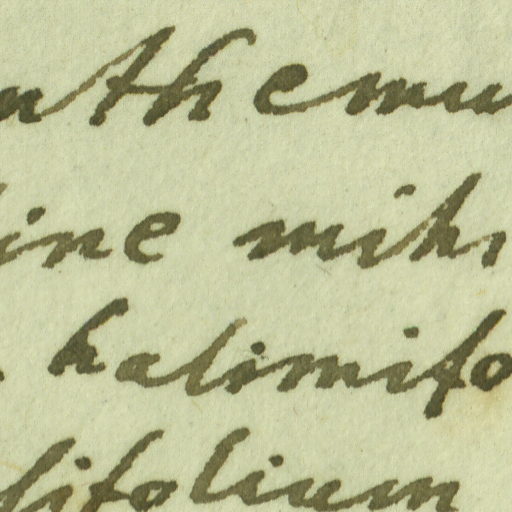 nthemu
ine mihi
halimifo
lifolium